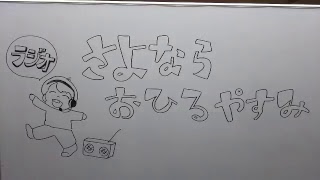 ラジオ
さよなら
おひるやすみ